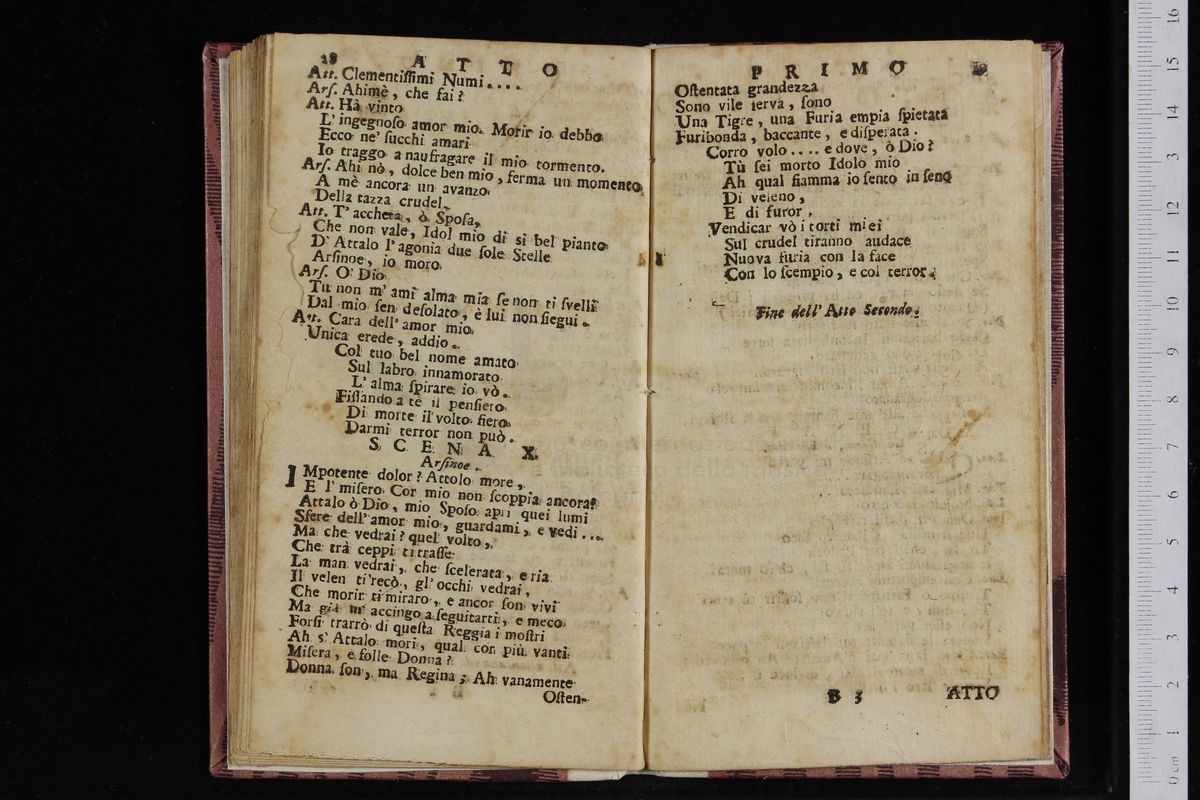 28 ATTO
Att. Clementiſſimi Numi....
Arſ. Ahimè, che fai?
Att. Hà vinto
L' ingegnoſo amor mio. Morir io debbo
Ecco ne' ſucchi amari
Io traggo a naufragare il mio tormento.
Arſ. Ahi nò, dolce ben mio, ferma un momento
A mè ancora un avanzo
Della tazza crudel.
Att. T' accheta, ò Spoſa,
Che non vale, Idol mio di sì bel pianto
D' Attalo l' agonia due ſole Stelle
Arſinoe, io moro
Arſ. O' Dio
Tu non m' ami alma mia ſe non ti ſvelli
Dal mio ſen deſolato, è lui non ſiegui.
Att. Cara dell' amor mio
Unica erede, addio.
Col tuo bel nome amato
Sul labro innamorato
L' alma ſpirare io vò.
Fiſſando a tè il penſiero
Di morte il volto fiero
Darmi terror non può.
SCENA X.
Arſinoe.
IMpotente dolor? Attolo more,
E l' miſero Cor mio non ſcoppia ancora?
Attalo ò Dio, mio Spoſo apri quei lumi
Sfere dell' amor mio, guardami, e vedi....
Ma che vedrai? quel volto,
Che trà ceppi ti traſſe
La man vedrai, che ſcelerata, e ria
Il velen ti recò, gl' occhi vedrai,
Che morir ti miraro, e ancor ſon vivi
Ma già m' accingo a ſeguitarti, e meco
Forſi trarrò di queſta Reggia i moſtri
Ah s' Attalo mori, qual cor più vanti
Miſera, e folle Donna?
Donna ſon, ma Regina; Ah vanamente
Oſten-
PRIMO
Oſtentata grandezza
Sono vile ſerva, ſono
Una Tigre, una Furia empia ſpietata
Furibonda, baccante, e diſperata.
Corro volo.... e dove, ò Dio?
Tù ſei morto Idolo mio
Ah qual fiamma io ſento in ſeno
Di veleno,
E di furor.
Vendicar vò i torti miei
Sul crudel tiranno audace
Nuova furia con la face
Con lo ſcempio, e col terror.
Fine dell' Atto Secondo.
B 3 ATTO
0 cm 1 2 3 4 5 6 7 8 9 10 11 12 13 14 15 16